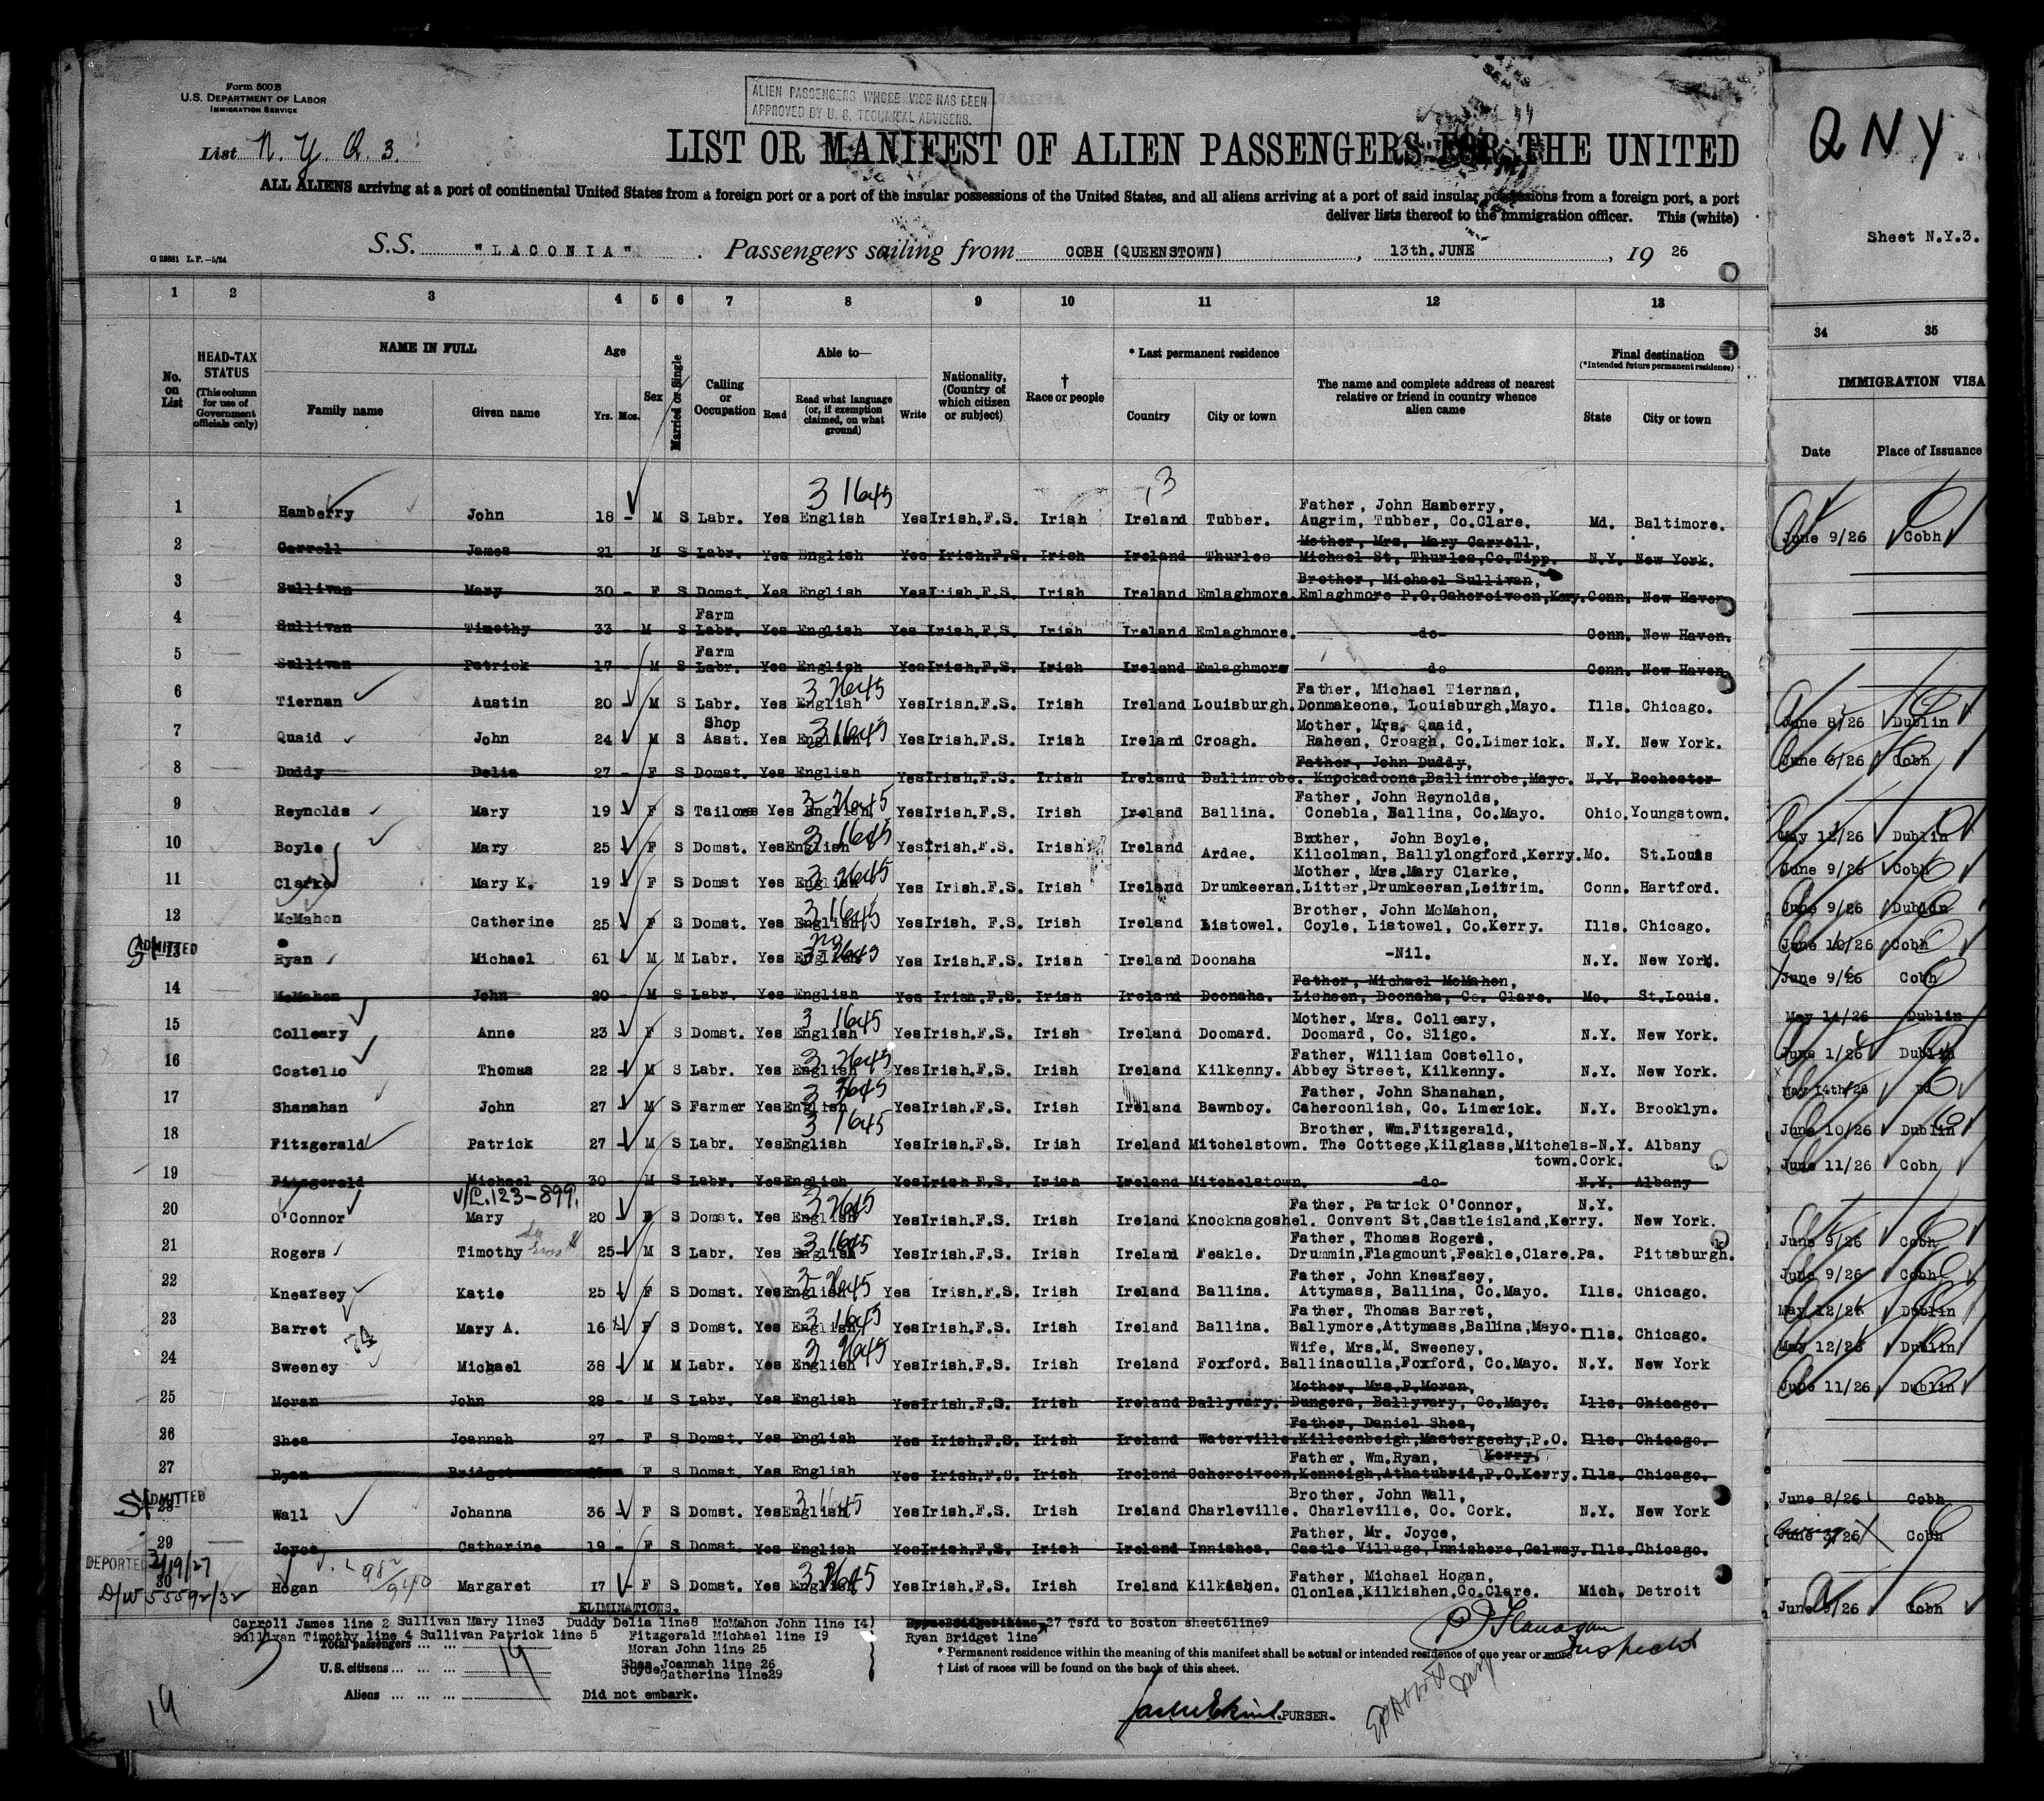 Form 500 B
U.S. DEPARTMENT OF LABOR
IMMIGRATION SERVICE
ALIEN PASSENGERS WHOSE VICE HAS BEEN
APPROVED BY U. S. TECHNICAL ADVISERS.
List N. Y. Q. 3.
LIST OR MANIFEST OF ALIEN PASSENGERS FOR THE UNITED
Q N Y
ALL ALIENS arriving at a port of continental United States from a foreign port or a port of the insular possessions of the United States, and all aliens arriving at a port of said insular possessions from a foreign port, a port
deliver lists thereof to the immigration officer. This (white)
Sheet N.Y.3.
S.S. "LACONIA" . Passengers sailing from COBH (QUEENSTOWN) , 13th.JUNE , 19 26
G 23881 L.P.—5/24
1 2 3 4 5 6 7 8 9 10 11 12 13 34 35
No. on List
HEAD-TAX STATUS (This column for use of Government officials only)
NAME IN FULL
Family name Given name
Age
Yrs. Mos.
Sex
Married or Single
Calling or Occupation
Able to—
Read Read what language (or, if exemption claimed, on what ground) Write
Nationality, (Country of which citizen or subject)
† Race or people
* Last permanent residence
Country City or town
The name and complete address of nearest relative or friend in country whence alien came
Final destination (*Intended future permanent residence)
State City or town
IMMIGRATION VISA
Date Place of Issuance
3 1645
Father, John Hamberry,
1 Hamberry John 18 - M S Labr. Yes English Yes Irish.F.S. Irish Ireland Tubber. Augrim, Tubber, Co.Clare. Md. Baltimore. June 9/26 Cobh
Mother, Mrs. Mary Carroll,
2 Carroll James 21 M S Labr. Yes English Yes Irish.F.S. Irish Ireland Thurles Michael St, Thurles,Co.Tipp. N.Y. New York.
Brother, Michael Sullivan,
3 Sullivan Mary 30 - F S Domst. Yes English Yes Irish.F.S. Irish Ireland Emlaghmore. Emlaghmore P.O.Caherciveen,Kery. Conn. New Haven
Farm
4 Sullivan Timothy 33 - M S Labr. Yes English Yes Irish.F.S. Irish Ireland Emlaghmore. -do- Conn. New Haven.
Farm
5 Sullivan Patrick 17 - M S Labr. Yes English Yes Irish.F.S. Irish Ireland Emlaghmore -do Conn. New Haven
Father, Michael Tiernan,
6 Tiernan Austin 20 - M S Labr. Yes English Yes Irish.F.S. Irish Ireland Louisburgh. Donmakeone, Louisburgh,Mayo. Ills. Chicago. June 8/26 Dublin
Shop Mother, Mrs. Quaid,
7 Quaid John 24 M S Asst. Yes English Yes Irish.F.S. Irish Ireland Croagh. Raheen, Croagh, Co.Limerick. N.Y. New York. June 6/26 Cobh
Father, John Duddy,
8 Duddy Delia 27 - F S Domst. Yes English Yes Irish.F.S. Irish Ireland Ballinrobe. Knockadoona,Ballinrobe,Mayo. N.Y. Rochester
Father, John Reynolds,
9 Reynolds Mary 19 F S Tailoress Yes English Yes Irish.F.S. Irish Ireland Ballina. Conebla, Ballina, Co.Mayo. Ohio. Youngstown. May 12/26 Dublin
Brother, John Boyle,
10 Boyle Mary 25 F S Domst. Yes English Yes Irish.F.S. Irish Ireland Ardae. Kilcolman, Ballylongford,Kerry. Mo. St.Louis June 9/26 Cobh
Mother, Mrs.Mary Clarke,
11 Clarke Mary K. 19 F S Domst Yes English Yes Irish.F.S. Irish Ireland Drumkeeran. Litter,Drumkeeran,Leitrim. Conn. Hartford. June 9/26 Dublin
Brother, John McMahon,
12 McMahon Catherine 25 F S Domst. Yes English Yes Irish. F.S. Irish Ireland Listowel. Coyle, Listowel, Co.Kerry. Ills. Chicago. June 10/26 Cobh
ADMITTED
13 Ryan Michael 61 M M Labr. Yes English Yes Irish.F.S. Irish Ireland Doonaha -Nil. N.Y. New York. June 9/26 Cobh
Father, Michael McMahon,
14 McMahon John 20 - M S Labr. Yes English Yes Irish.F.S. Irish Ireland Doonaha. Lisheen, Doonaha, Co. Clare. Mo. St.Louis. May 14/26 Dublin
Mother, Mrs. Colleary,
15 Colleary Anne 23 F S Domst. Yes English Yes Irish.F.S. Irish Ireland Doomard. Doomard, Co. Sligo. N.Y. New York. June 1/26 Dublin
Father, William Costello,
16 Costello Thomas 22 M S Labr. Yes English Yes Irish.F.S. Irish Ireland Kilkenny. Abbey Street, Kilkenny. N.Y. New York. May 14th/26
Father, John Shanahan,
17 Shanahan John 27 M S Farmer Yes English Yes Irish.F.S. Irish Ireland Bawnboy. Caherconlish, Co. Limerick. N.Y. Brooklyn. June 10/26 Dublin
Brother, Wm.Fitzgerald,
18 Fitzgerald Patrick 27 M S Labr. Yes English Yes Irish.F.S. Irish Ireland Mitchelstown. The Cottege,Kilglass,Mitchels- N.Y. Albany June 11/26 Cobh
town.Cork.
19 Fitzgerald Michael 30 M S Labr. Yes English Yes Irish F.S. Irish Ireland Mitchelstown. -do- N.Y. Albany
V/L.123-899.
Father, Patrick O'Connor, N.Y.
20 O'Connor Mary 20 F S Domst. Yes English Yes Irish.F.S. Irish Ireland Knocknagoshel. Convent St,Castleisland,Kerry. New York. June 9/26 Cobh
Father, Thomas Rogers,
21 Rogers Timothy 25 M S Labr. Yes English Yes Irish.F.S. Irish Ireland Feakle. Drummin,Flagmount,Feakle,Clare. Pa. Pittsburgh. June 9/26 Cobh
Father, John Kneafsey,
22 Kneafsey Katie 25 F S Domst. Yes English Yes Irish.F.S. Irish Ireland Ballina. Attymass, Ballina, Co.Mayo. Ills. Chicago. May 12/26 Dublin
Father, Thomas Barret,
23 Barret Mary A. 16 F S Domst. Yes English Yes Irish.F.S. Irish Ireland Ballina. Ballymore,Attymass,Ballina,Mayo. Ills. Chicago. May 12/26 Dublin
Wife, Mrs.M. Sweeney,
24 Sweeney Michael 38 M M Labr. Yes English Yes Irish.F.S. Irish Ireland Foxford. Ballinaculla,Foxford, Co.Mayo. N.Y. New York June 11/26 Dublin
Mother, Mrs.P.Moran,
25 Moran John 28 - M S Labr. Yes English Yes Irish.F.S. Irish Ireland Ballyvary. Dungora, Ballyvary, Co.Mayo. Ills. Chicago.
Father, Daniel Shea,
26 Shea Joannah 27 - F S Domst. Yes English Yes Irish.F.S. Irish Ireland Waterville. Killeenbeigh,Mastergeehy,P.O. Ills. Chicago.
Father, Wm.Ryan, Kerry.
27 Ryan Bridget F S Domst. Yes English Yes Irish.F.S. Irish Ireland Caherciveen. Kenneigh,Athatubrid,P.O.Kerry. Ills. Chicago.
ADMITTED Brother, John Wall,
28 Wall Johanna 36 F S Domst. Yes English Yes Irish.F.S. Irish Ireland Charleville. Charleville, Co. Cork. N.Y. New York June 8/26 Cobh
Father, Mr. Joyce,
29 Joyce Catherine 19 - F S Domst. Yes English Yes Irish.F.S. Irish Ireland Innishea. Castle Village,Innishere,Galway. Ills. Chicago. Cobh
DEPORTED 2/19/27
Father, Michael Hogan,
30 Hogan Margaret 17 - F S Domst. Yes English Yes Irish.F.S. Irish Ireland Kilkishen. Clonlea,Kilkishen,Co.Clare. Mich. Detroit June 8/26 Cobh
D/W 55592/32
ELIMINATIONS.
Carroll James line 2 Sullivan Mary line3 Duddy Delia line8 McMahon John line 14 27 Tsfd to Boston sheet6line9
Sullivan Timothy line 4 Sullivan Patrick line 5 Fitzgerald Michael line 19 Ryan Bridget line
Moran John line 25
Shea Joannah line 26
Joyce Catherine line29
Did not embark.
Total passengers ... ...
U.S. citizens ... ... ... 19
Aliens ... ... ...
* Permanent residence within the meaning of this manifest shall be actual or intended residence of one year or more.
† List of races will be found on the back of this sheet.
Flanagan
Inspector
PURSER.
19